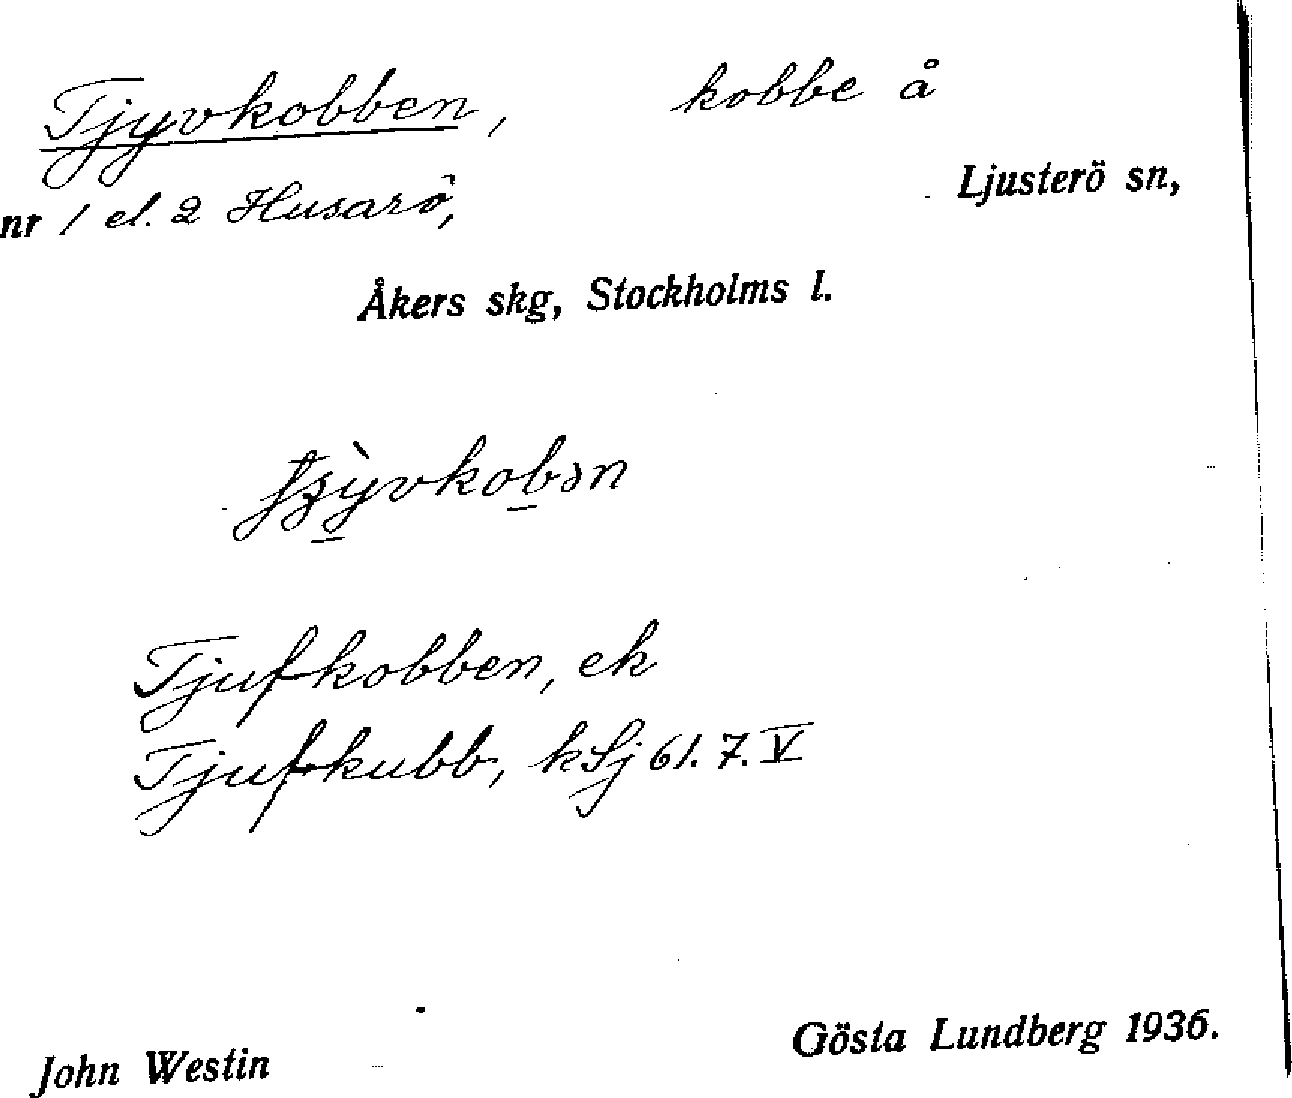 Tjyvkobben, kobbe å
nr 1 el. 2 Husarö, Ljusterö sn,
Åkers skg, Stockholms l.
Tjufkobben, ek
Tjufkubb, kSj 61. 7. V
John Westin Gösta Lundberg 1936.